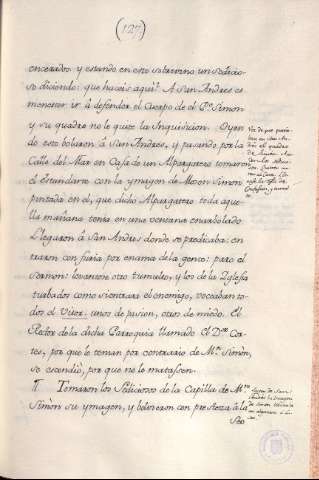 (127)
encerados y estando en esto sobrevino un Sedicio-
so diciendo: que haceis aqui? A San Andres es
menester ir á defender el Cuerpo de el Pe. Simon
y su quadro no le quite la Inquisicion. Oyen-
do esto bolaron á San Andres, y pasando por la
Calle del Mar en Casa de un Alpargatero tomaron
el Estandarte con la ymagen de Mosen Simon
pintada en el, que dicho Alpargatero toda aque-
lla mañana tenia en una ventana enarbolado.
Llegaron á San Andres donde se predicaba: en-
traron con furia por encima de la gente: paró el
Sermon: levantose otro tumulto, y los de la Iglesia
turbados como si entrara el enemigo, voceaban to-
dos el Vitor: unos de pasion, otros de miedo. El
Retor de la dicha Parroquia llamado el Dor. Cor-
tes, por que le tenian por contrario de Mn. Simón,
se escondió, por que no le matassen.
¶ Tomaron los Sediciosos de la Capilla de Mn.
Simón su ymagen, y bolvieron con presteza á la
Seo